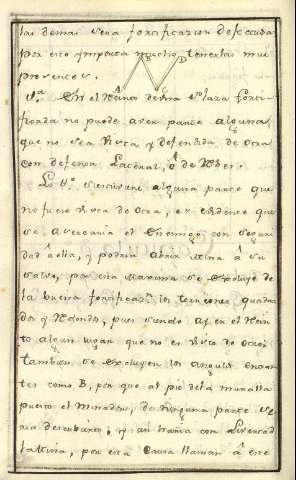 las demas sera fortificazion defectuosa
por esto ymporta mucho tenerlas mui
presentes.
B D
1.ª En el Recinto de una Plaza forti-
ficada no puede aver parte alguna
que no sea vista y defendida de otra
con defensa
Lo 1.º si estuviere alguna parte que
no fuese vista de otra, es evidente que
se azercaria el Enemigo con seguri-
dad à ella, y podria abrir mina à su
salvo, por esta maxima se excluye de
la buena fortificaz.n los torreones quadra-
dos y Redondos, pues siendo asi en el Recin-
to algun lugar que no es visto de otros
tambien se excluyen los angulos
tes como B, por que al pie de la muralla
puesto el Minador, de ninguna parte se-
ria descubierto, y asi haria con livertad
la mina, por esta causa llaman à este